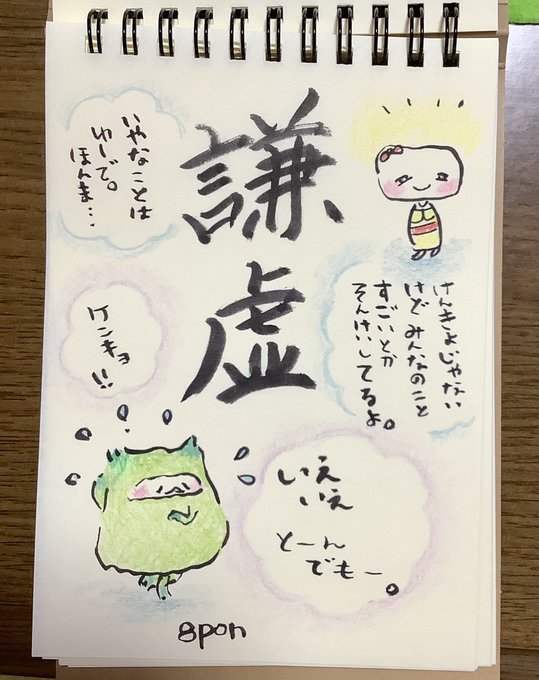 謙虚
いやなことは
ゆーで。
ほんま…
けんきょじゃない
けどみんなのこと
すごいとか
そんけいしてるよ。
ケンキョ!!
いえ
いえ
とーん
でもー。
8pon